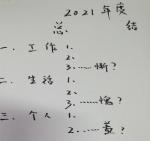 2021年度
总 结
一、工作 1.
2.
3.……惭?
二、生活 1.
2.
3.……愧?
三、个人 1.
2.……羞?